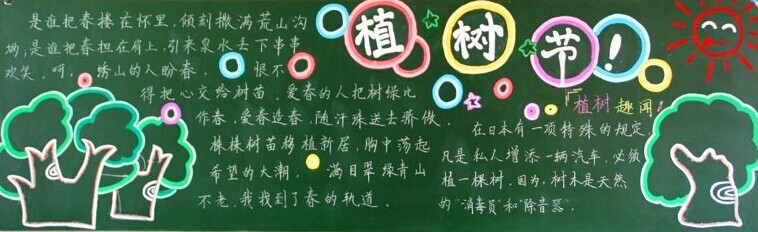 植树节!
是谁把春搂在怀里,倾刻撒满荒山沟
坳;是谁把春担在肩上,引来泉水丢下串串
欢笑。呵,绣山的人盼春, 恨不
得把心交给树苗,爱春的人把树绿比
作春,爱春造春,随汗珠送去骄傲。
株株树苗移植新居,胸中荡起
希望的大潮, 满目翠绿青山
不老,我找到了春的轨道。
植树趣闻
在日本有一项特殊的规定,
凡是私人增添一辆汽车,必须
植一棵树。因为,树木是天然
的"消毒员"和"除音器。